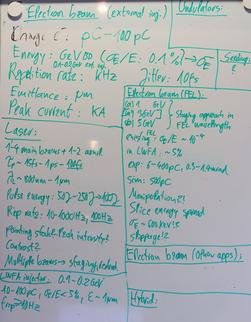 Electron beam (external inj.)
Charge : pC-100pC
Energy: GeV (σE/E: 0.1%) → σE
Repetition rate: kHz
Jitter: 10fs
Emittance: μm
Peak current: kA
Undulators:
Seeding:
Laser:
1-4 main beams + 1-2 aux
λ ~ 800nm - 1μm
Pulse energy: 50J - 250J → 100J
Rep rate: 10-1000Hz, 100Hz
pointing stable. Peak intensity?
Contrast?
Multiple beams → staging/colliding
LWFA injector: 0.1-0.2GeV
10-100pC, σE/E<5%, ε~1μm
Electron beam (FEL):
(a) 1 GeV
(b) 3 GeV
(c) 5 GeV
Staging approach in
FEL wavelength
existing: σE/E ~ 10-4
in LWFA: ~5%
Exp: 6-400pC, 0.3-1.4mrad
Sim: 500pC
Manipulation?!
Slice energy spread
Electron beam (other apps):
Hybrid: